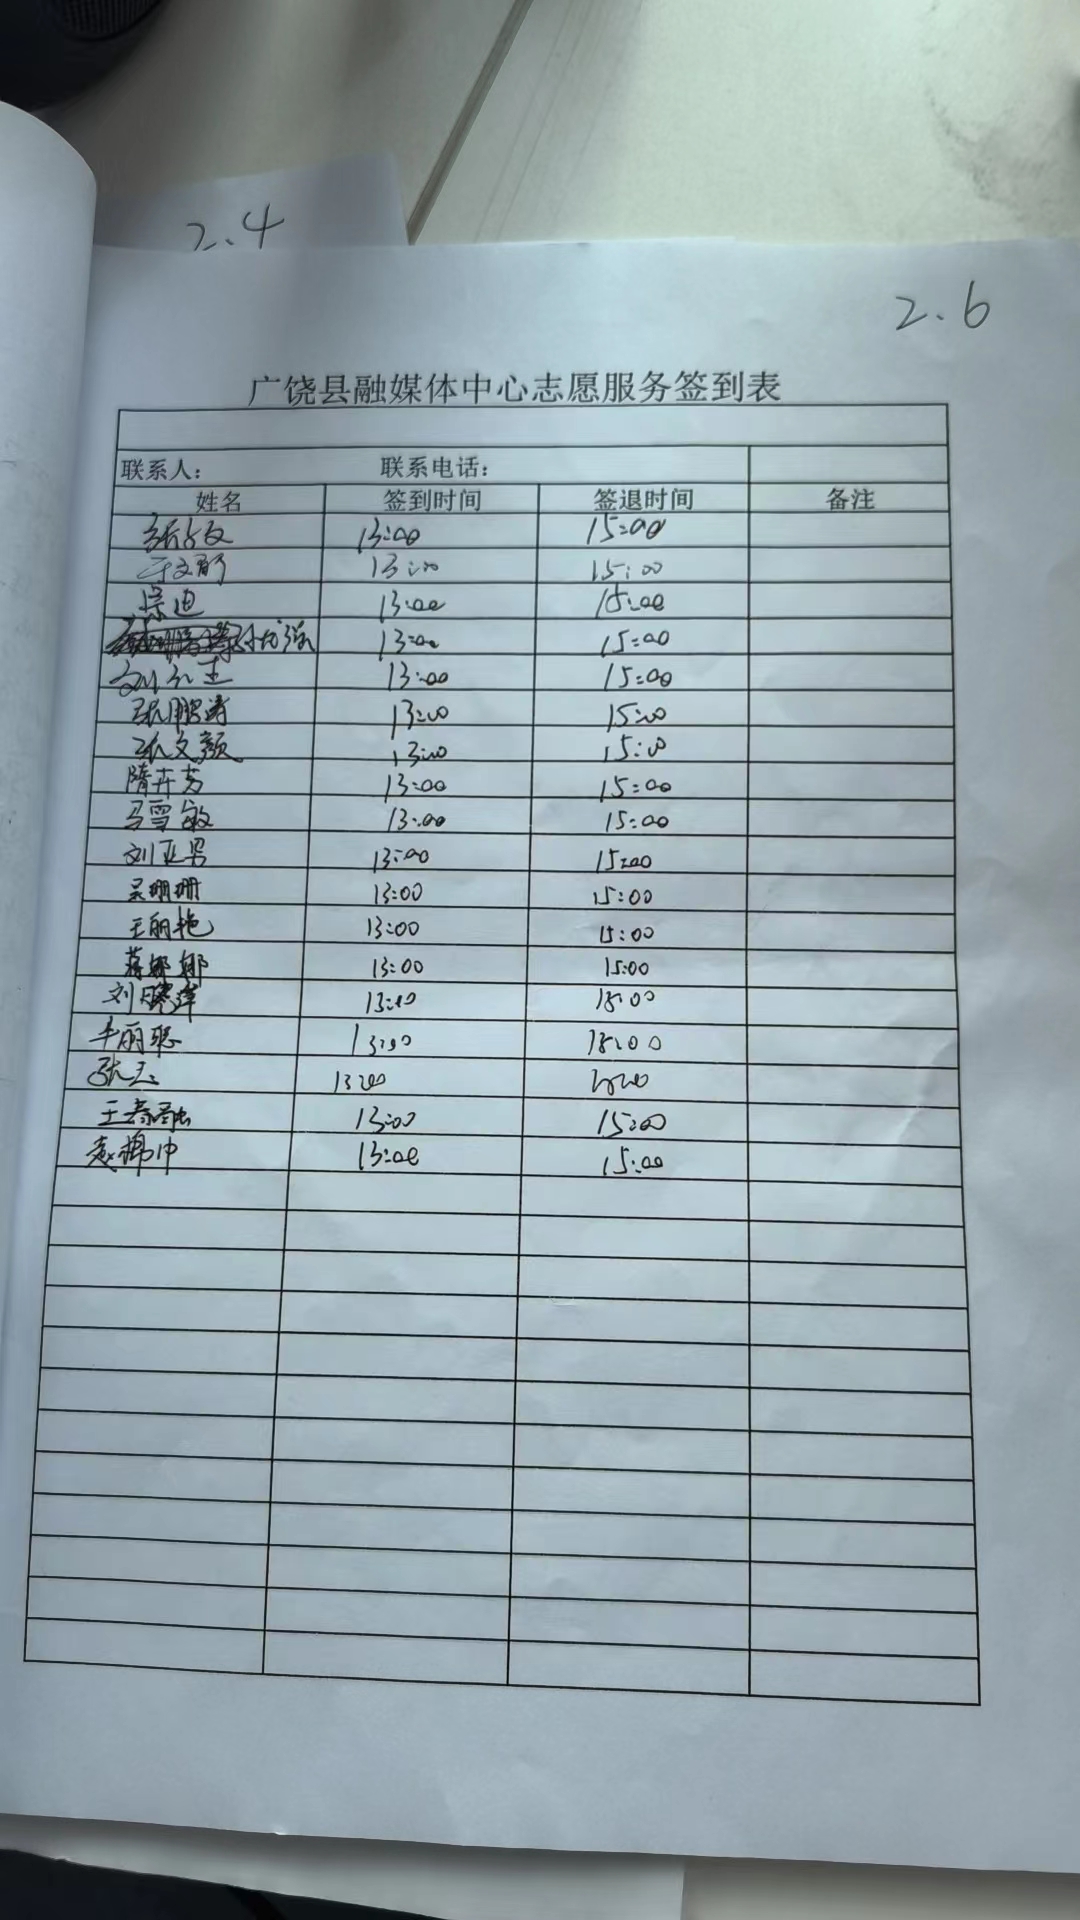 2.4
2.6
广饶县融媒体中心志愿服务签到表
联系人： 联系电话：
姓名 签到时间 签退时间 备注
13:00 15:00
13:00 15:00
崇迪 13:00 15:00
13:00 15:00
13:00 15:00
张鹏涛 13:00 15:00
张文颜 13:00 15:00
隋卉芳 13:00 15:00
马雪敏 13:00 15:00
刘亚男 13:00 15:00
吴珊珊 13:00 15:00
王丽艳 13:00 15:00
蒋娜娜 13:00 15:00
刘晓萍 13:00
13:00
张云 13:00
王春融 13:00 15:00
13:00 15:00